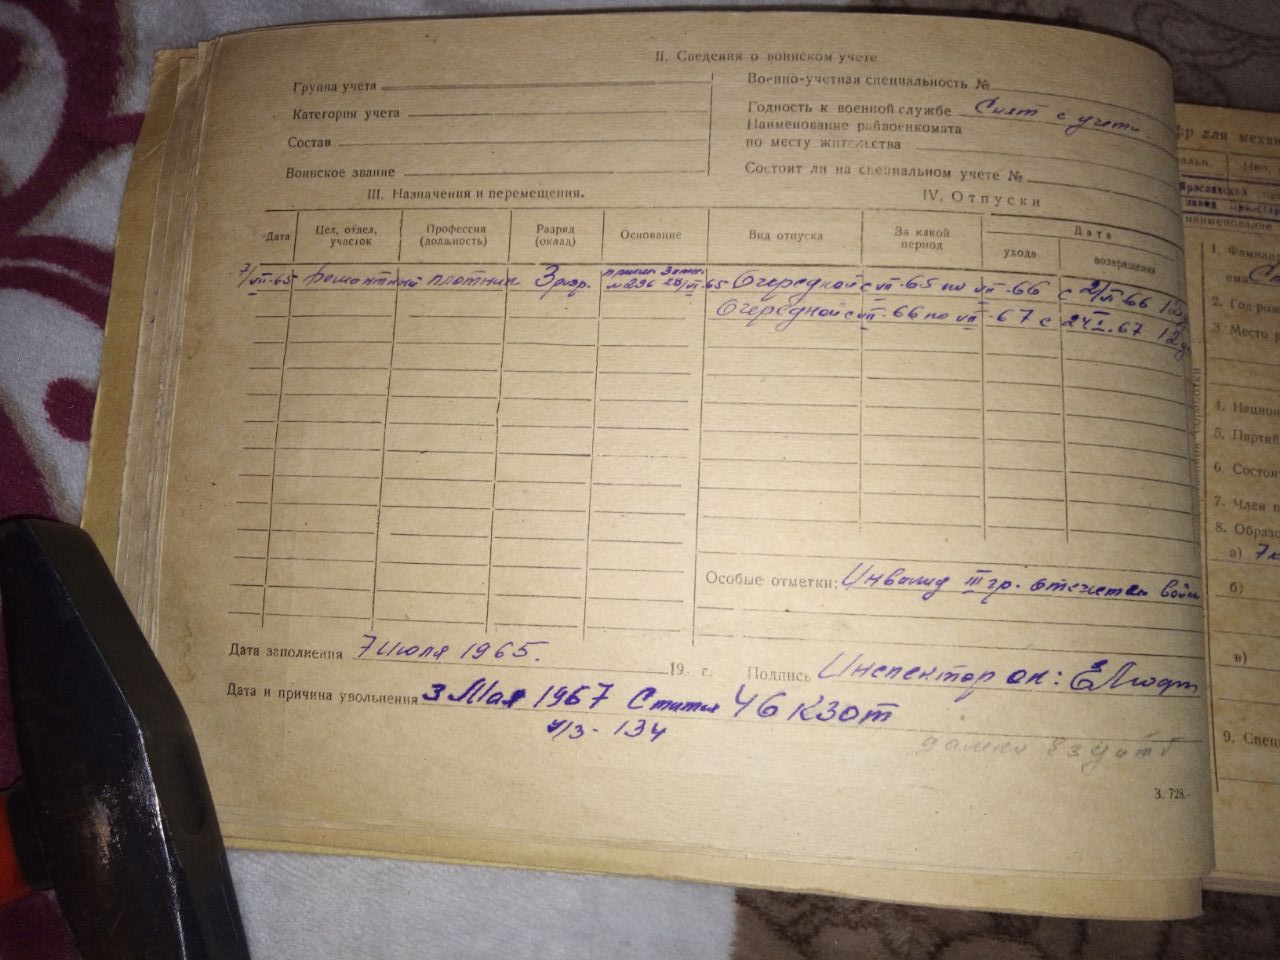 II. Сведения о воинском учете
Группа учета
Категория учета
Состав
Воинское звание
Военно-учетная специальность №
Годность к военной службе Снят с учета.
Наименование райвоенкомата
по месту жительства
Состоит ли на специальном учете №
III. Назначения и перемещения.
Дата Цех, отдел, участок Профессия (должность) Разряд (оклад) Основание
7/VII-65 Ремонтный плотник 3 разр. №296 28/VI.65
IV. Отпуски
Вид отпуска За какой период Дата ухода возвращения
Очередной с VII-65 по VII-66 с 2/VI-66 12
Очередной с VII-66 по VII-67 с 24/I-67 12
Особые отметки: Инвалид III гр. отечествен войн
Дата заполнения 7 Июля 1965. 19 г.
Подпись Инспектор ок:
Дата и причина увольнения 3 Мая 1967 Статья 46 КЗОТ
134
З. 728.
для механ
1. Фамил
имя
2. Год рож
3. Место р
4. Национ
5. Партий
6. Состои
7. Член п
8. Образо
а) 7 к
б)
в)
9. Спец